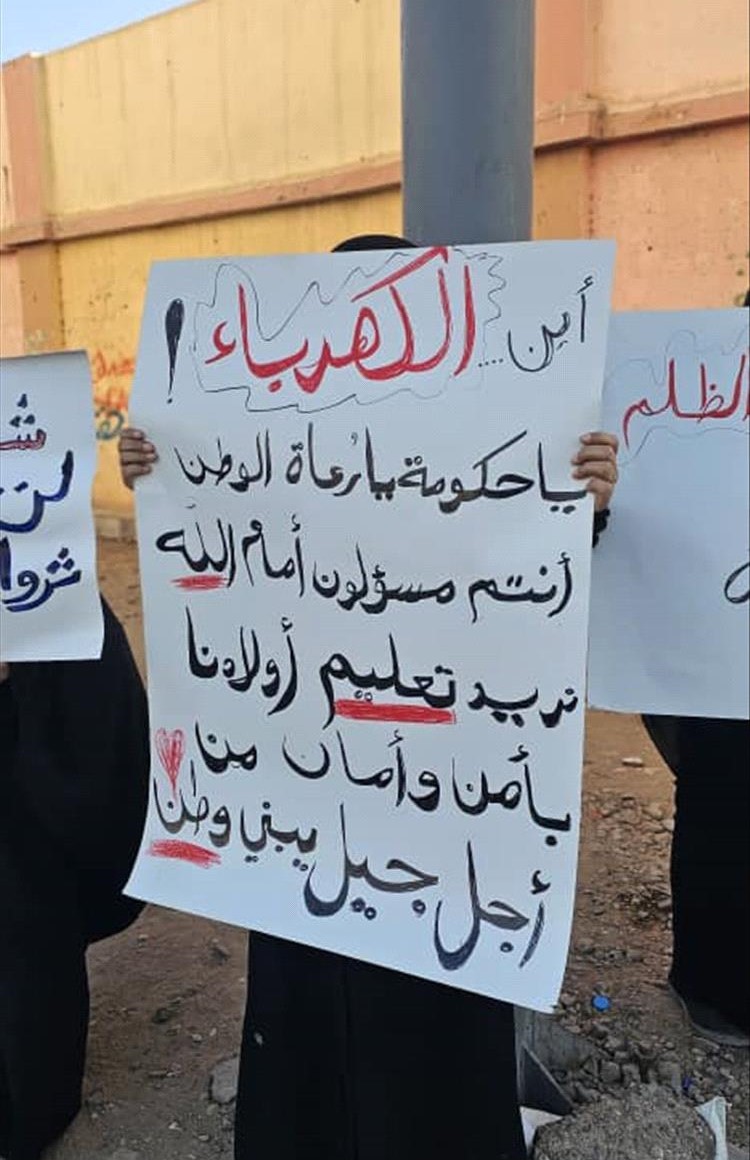 أين .... الكهرباء !
يا حكومة يا رُعاة الوطن
أنتم مسؤلون أمام الله
نريد تعليم أولادنا
بأمن وأمان من
أجل جيل يبني وطن
الظلم